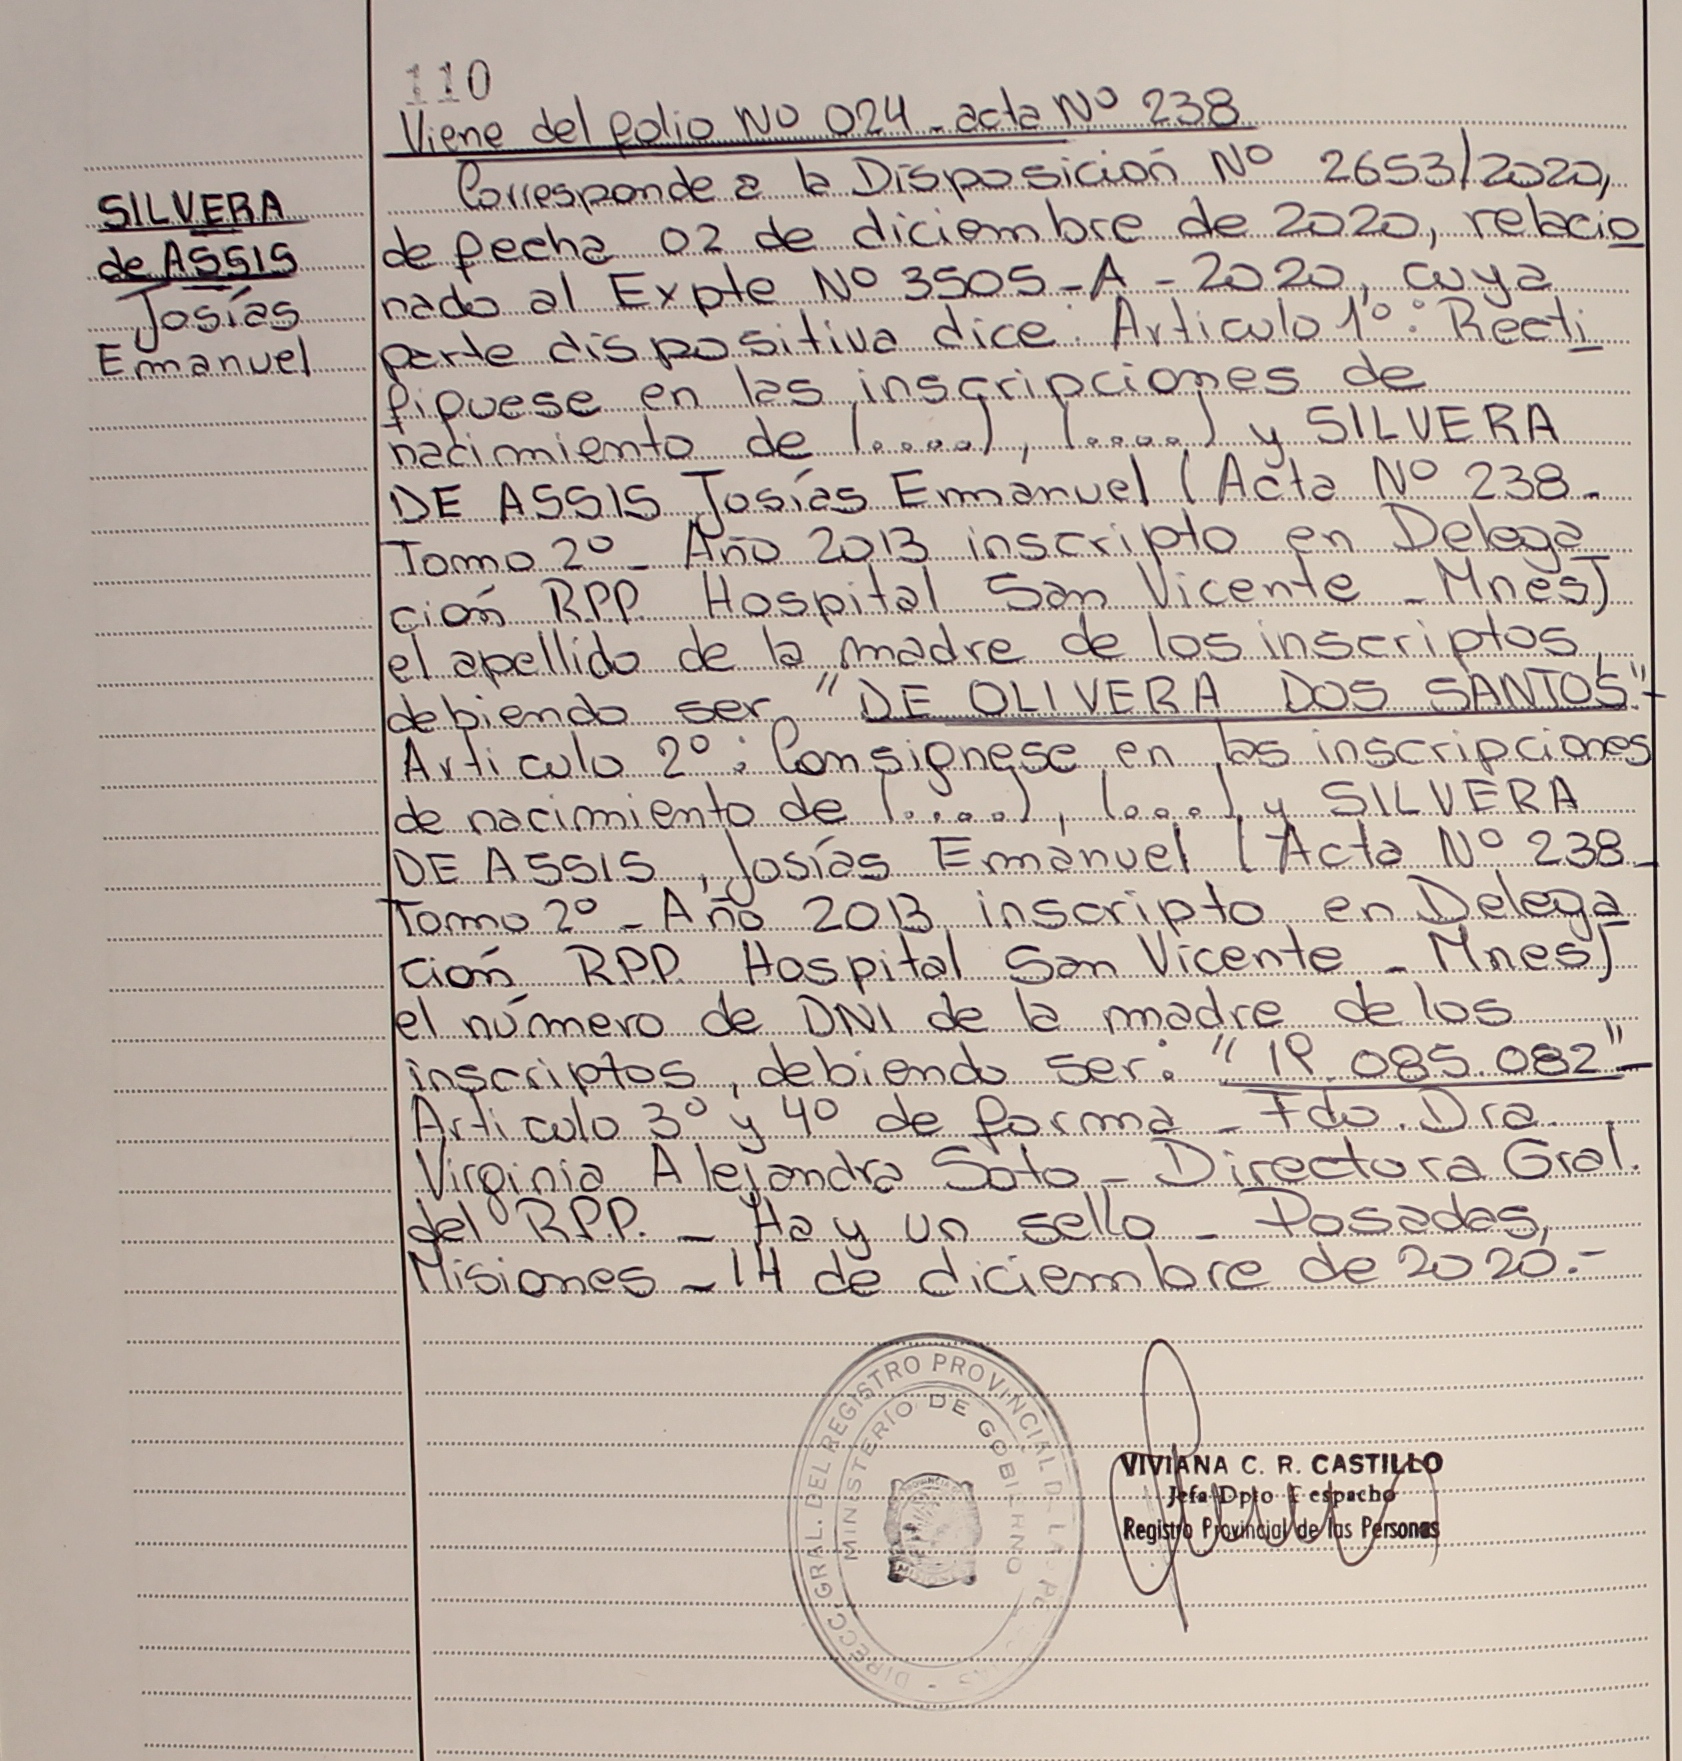 110
Viene del folio Nº 024 - acta Nº 238
SILVERA
de ASSIS
Josías
Emanuel
Corresponde a la Disposición Nº 2653/2020,
de fecha 02 de diciembre de 2020, relacio
nado al Expte Nº 3505-A-2020, cuya
parte dispositiva dice: Articulo 1º: Recti
fiquese en las inscripciones de
nacimiento de (....), (....) y SILVERA
DE ASSIS Josías Emanuel (Acta Nº 238-
Tomo 2º - Año 2013 inscripto en Delega
ción R.P.P. Hospital San Vicente - Mnes)
el apellido de la madre de los inscriptos,
debiendo ser "DE OLIVERA DOS SANTOS"-
Articulo 2º: Consignese en las inscripciones
de nacimiento de (....), (....) y SILVERA
DE ASSIS, Josías Emanuel (Acta Nº 238-
Tomo 2º - Año 2013 inscripto en Delega
ción R.P.P. Hospital San Vicente - Mnes)
el número de DNI de la madre de los
inscriptos, debiendo ser: "19.085.082"-
Articulo 3º y 4º de forma - Fdo. Dra.
Virginia Alejandra Soto - Directora Gral.
del R.P.P. - Hay un sello - Posadas,
Misiones - 14 de diciembre de 2020.-
DIRECC. GRAL. DEL REGISTRO PROVINCIAL DE LAS PERSONAS
MINISTERIO DE GOBIERNO
VIVIANA C. R. CASTILLO
Jefa Dpto Despacho
Registro Provincial de las Personas